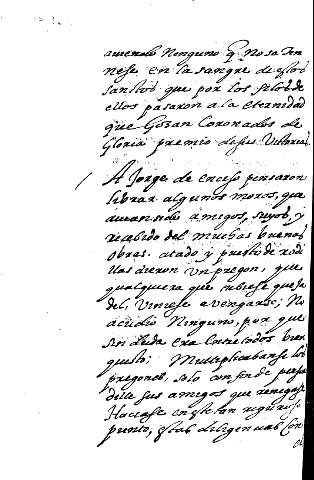 auiendo Ninguno q̃ No se ten
nese en la sangre de estos
santos que por los filos de
ellos pasaron a la eternidad
que Gozan Coronados de
Gloria premio de sus Victorias.
A Jorge de enciso pensaron
librar algunos moros, que
auian sido amigos, suyos, y
recebido del muchas buenas
obras. atado, y puesto de rodi
llas dieron un pregon, que
qualquiera que tubiese quexa
del, viniese a vengarse; No
acudio Ninguno, por que
sin duda era con todos bien
quisto; Multiplicabanse los
pregones, solo con fin de
de sus amigos que renegase
Haciase en este tan riguroso
punto, estas diligencias Con